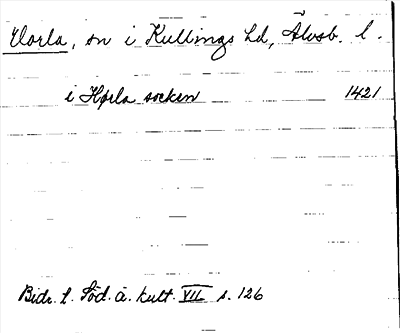 Vorla, sn i Kullings hd, Älvsb. l.
i Horla socken 1421
Bidr. t. Söd. ä. kult. VII s. 126